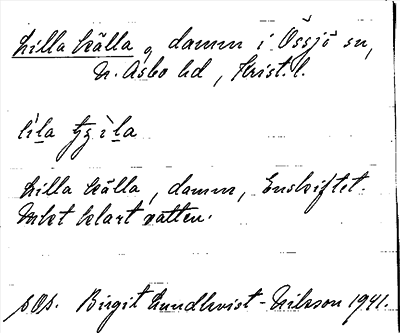 Lilla källa, damm i Össjö sn,
N. Åsbo hd, Krist. l.
Lilla källa, damm, Enskiftet.
Mkt klart vatten.
Birgit Lundkvist-Nilsson 1941.